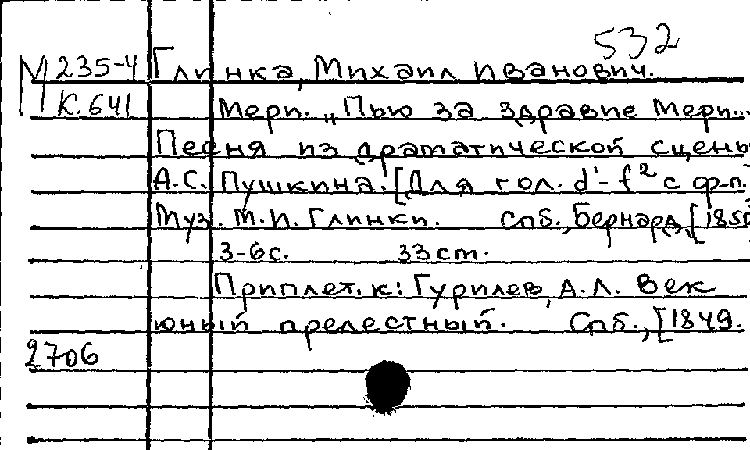 532
М 235-4 Глинка, Михаил Иванович.
К.641 Мери. „Пью за здравие Мери...
Песня из драматической сцены
А.С. Пушкина. [Для гол. d¹-f² с ф-п.
Муз. М.И. Глинки. Спб., Бернард, [185
3-6с. 33ст.
Приплет. к: Гурилев, А.Л. Век
юный прелестный. Спб., [1849.
2706